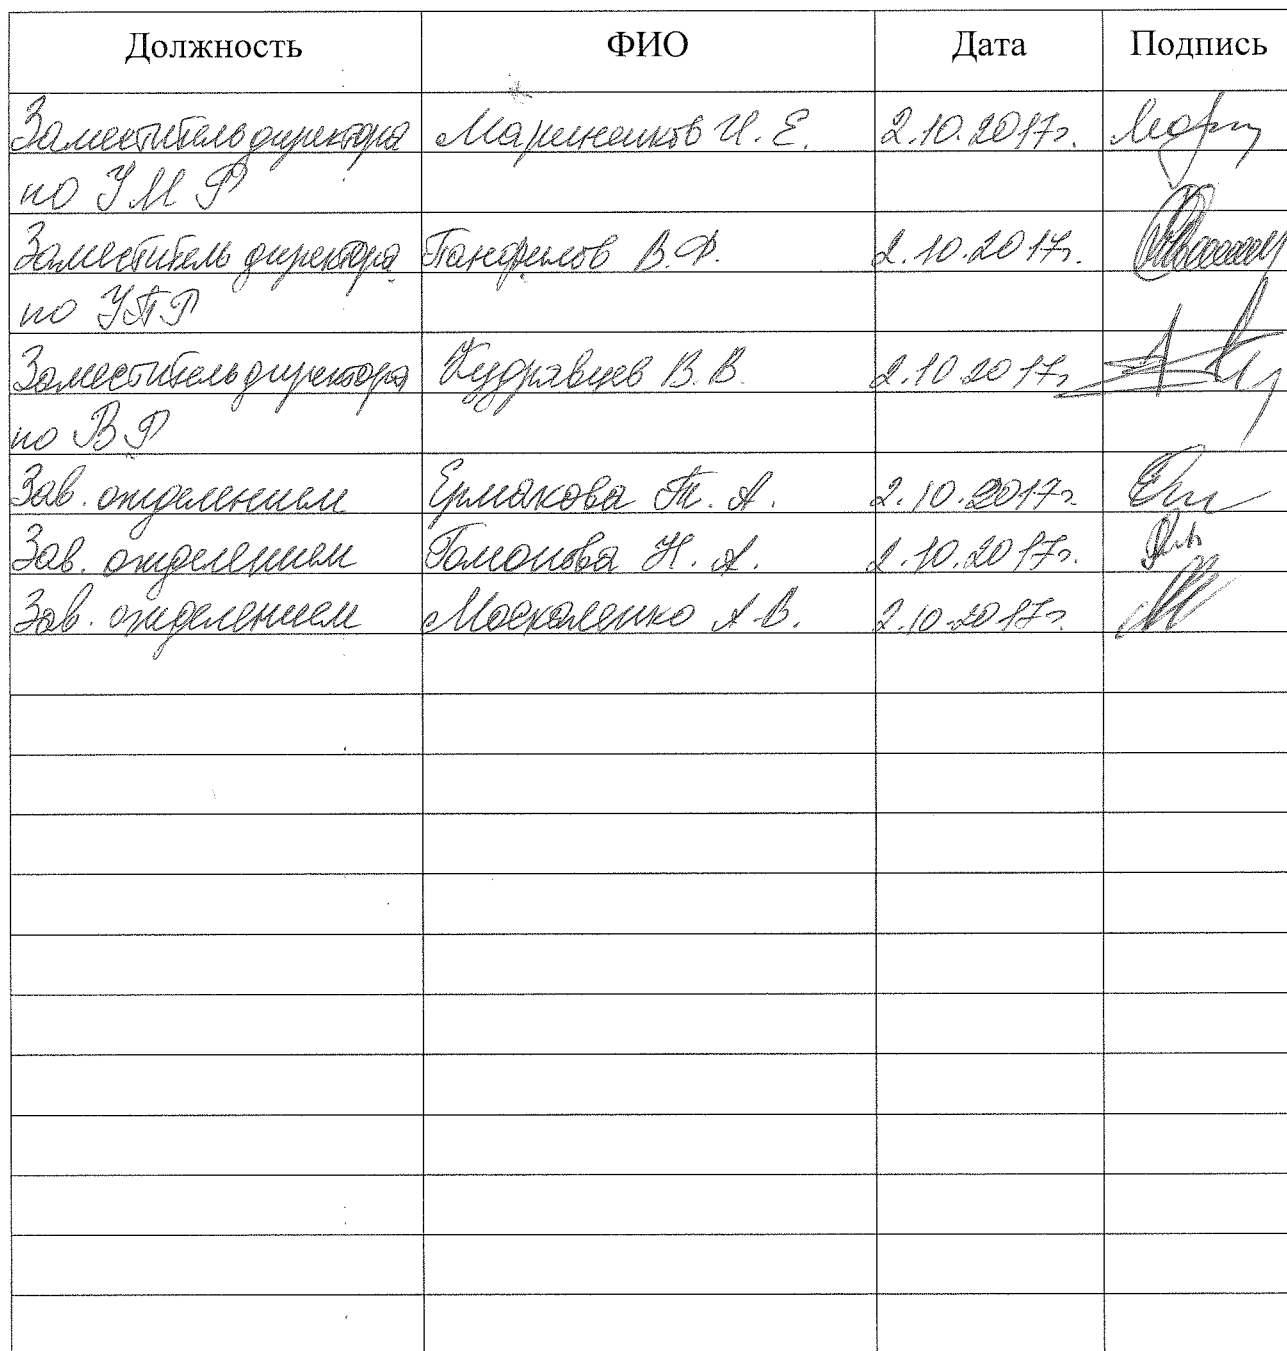 Должность ФИО Дата Подпись
Заместитель директора Мариненков И. Е. 2.10.2017г.
по УМР
Заместитель директора Панфилов В.Ф. 2.10.2017г.
по УПР
Заместитель директора Кудрявцев В.В. 2.10.2017г
по ВР
Зав. отделением Ермакова Т. А. 2.10.2017г.
Зав. отделением Н. А. 2.10.2017г.
Зав. отделением Москаленко А.В. 2.10.2017г.